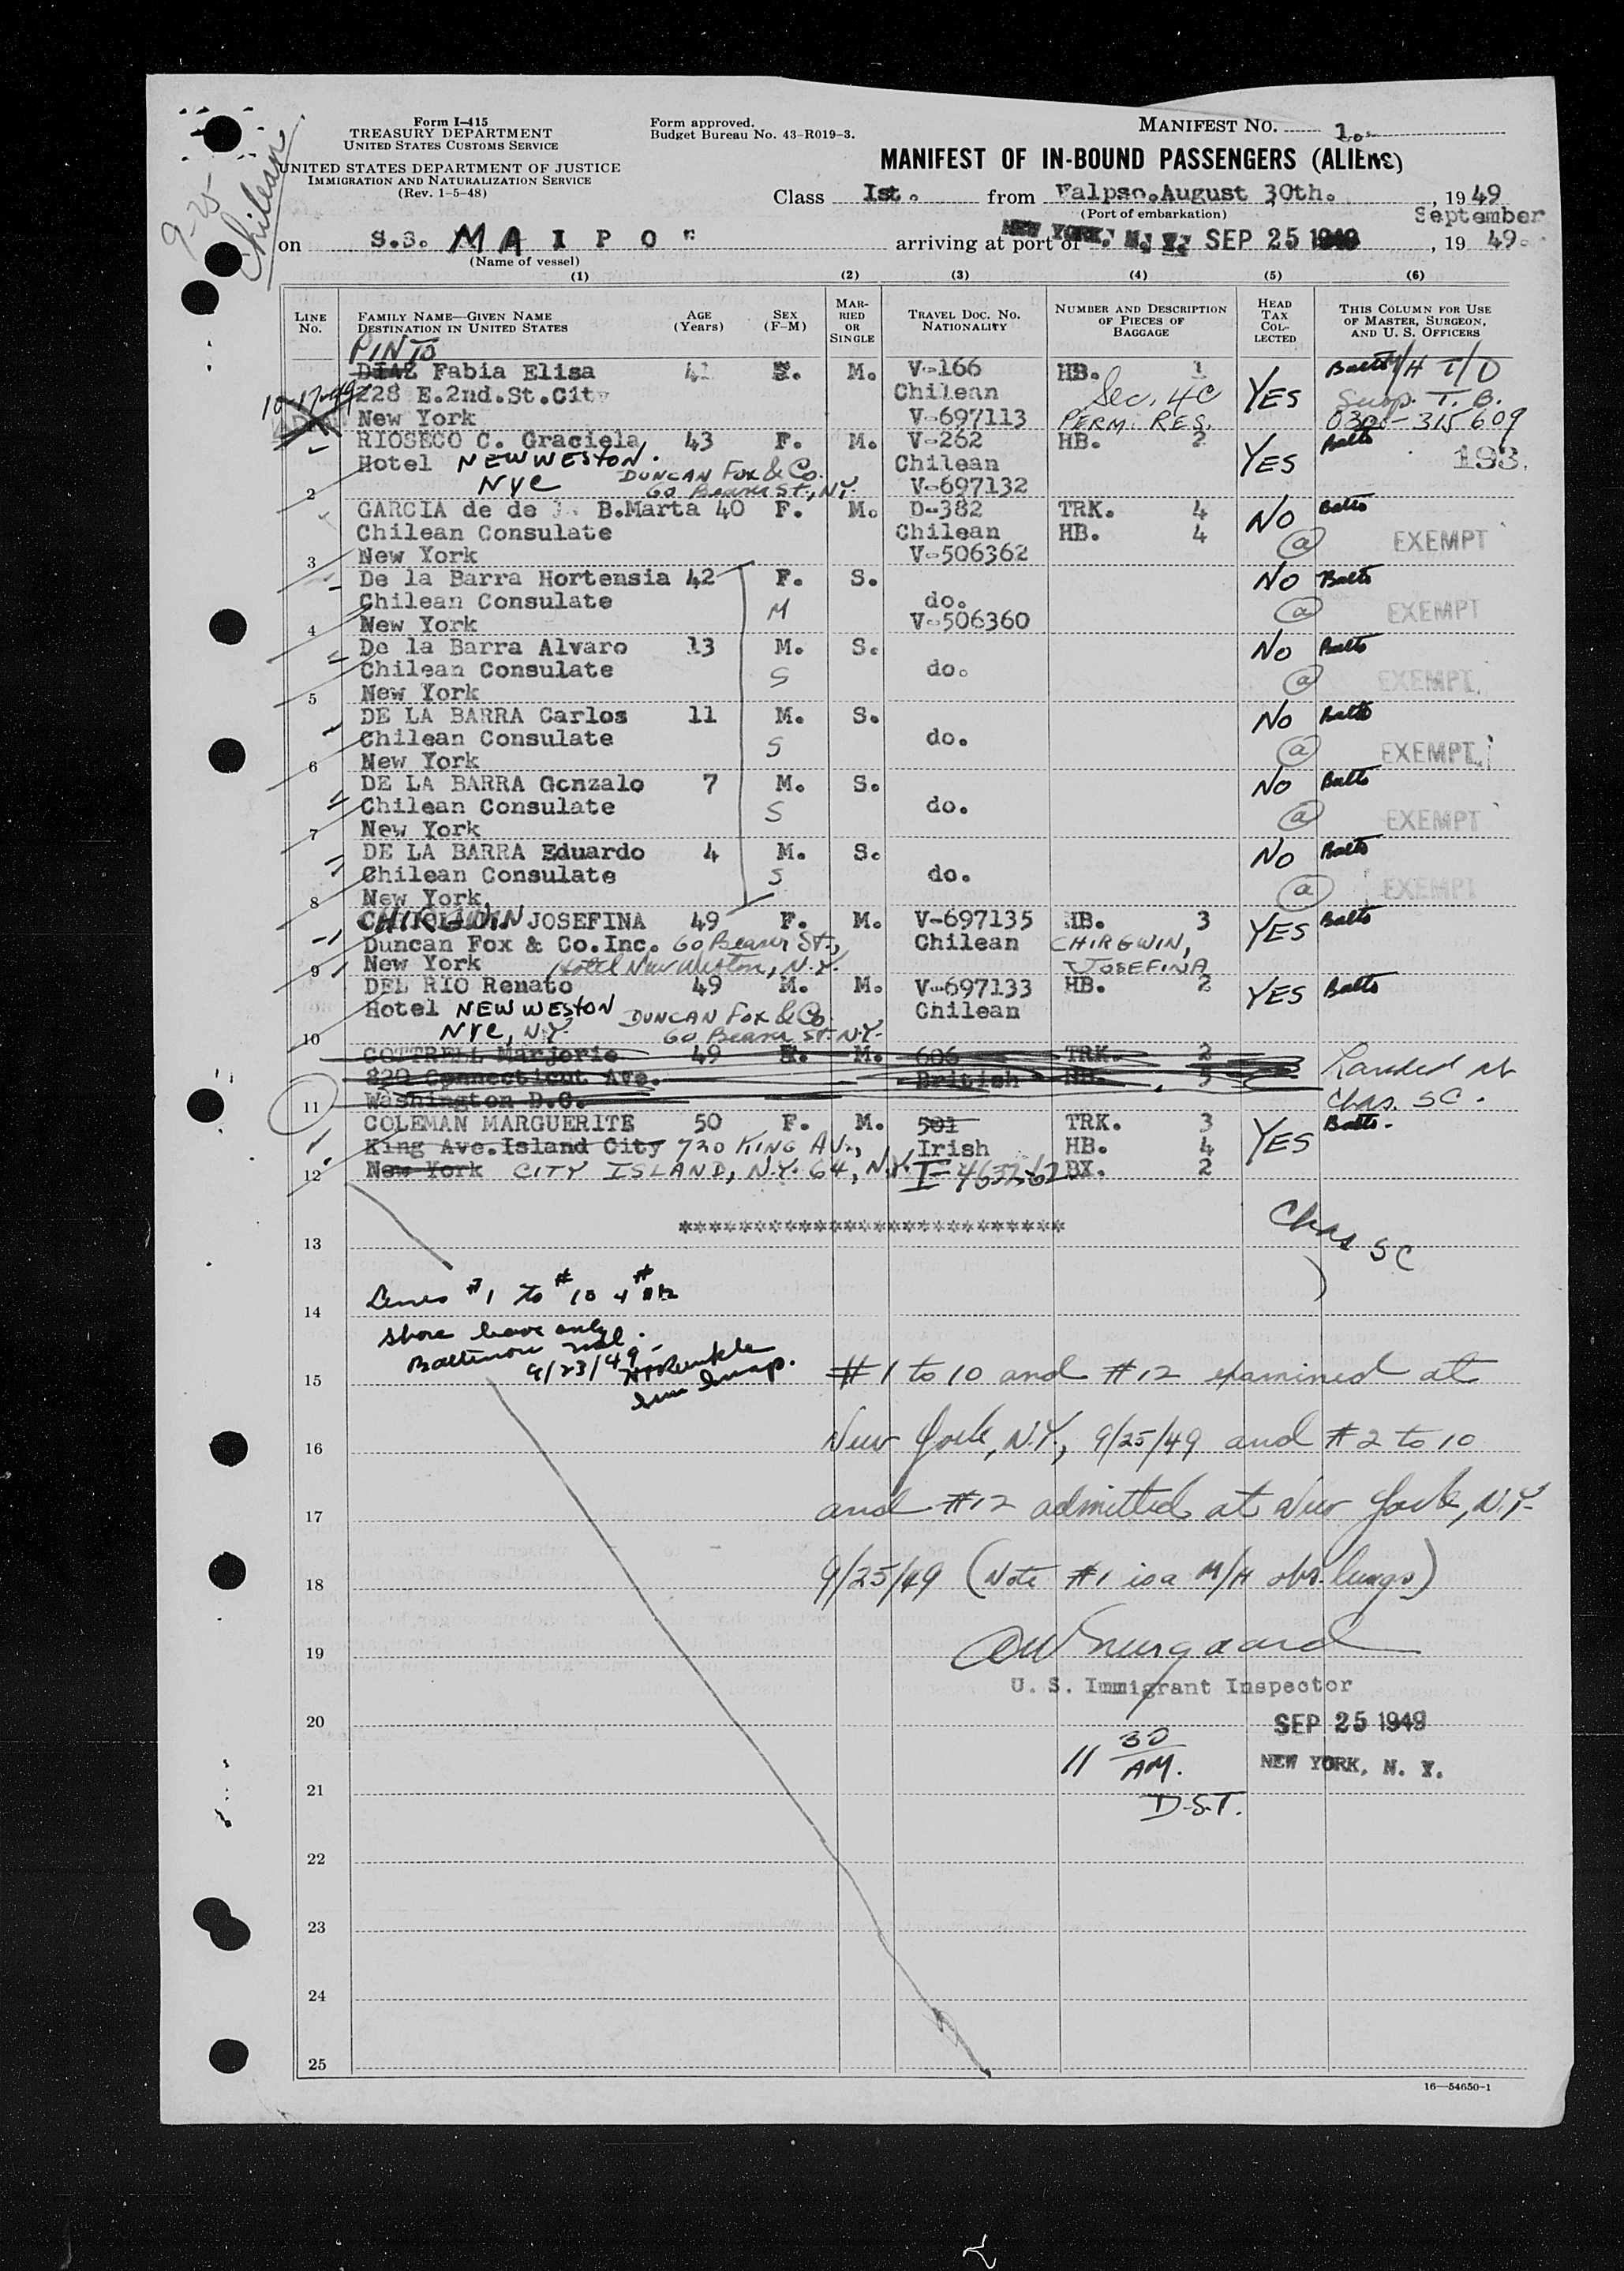 Form I-415
TREASURY DEPARTMENT
UNITED STATES CUSTOMS SERVICE
UNITED STATES DEPARTMENT OF JUSTICE
IMMIGRATION AND NATURALIZATION SERVICE
(Rev. 1-5-48)
Form approved.
Budget Bureau No. 43-R019-3.
9-25
Chilean
MANIFEST NO. 1.
MANIFEST OF IN-BOUND PASSENGERS (ALIENS)
Class Ist. from Valpso.August 30th. , 1949
(Port of embarkation)
September
on S.S. MAIPO" arriving at port of NEW YORK, N. Y. SEP 25 1949 , 19 49.
(Name of vessel)
(1) (2) (3) (4) (5) (6)
LINE No. FAMILY NAME—GIVEN NAME DESTINATION IN UNITED STATES AGE (Years) SEX (F-M) MARRIED OR SINGLE TRAVEL DOC. NO. NATIONALITY NUMBER AND DESCRIPTION OF PIECES OF BAGGAGE HEAD TAX COLLECTED THIS COLUMN FOR USE OF MASTER, SURGEON, AND U. S. OFFICERS
PINTO
DIAZ Fabia Elisa F. M. V-166 HB. 1 Balto M/H T/D
10-17-49 228 E.2nd.St.City Chilean Sec. 4C YES Susp. T. B.
New York V-697113 PERM. RES. 0300-315609
RIOSECO C. Graciela 43 F. M. V-262 HB. 2 Balto
Hotel NEW WESTON. Chilean YES 193.
NYC DUNCAN FOX & Co. 60 Beaver St., N.Y. V-697132
2
GARCIA de de B.Marta 40 F. M. D-382 TRK. 4 NO Balto
Chilean Consulate Chilean HB. 4 (a) EXEMPT
3 New York V-506362
De la Barra Hortensia 42 F. S. NO Balto
Chilean Consulate M do. (a) EXEMPT
4 New York V-506360
De la Barra Alvaro 13 M. S. NO Balto
Chilean Consulate S do. (a) EXEMPT
5 New York
DE LA BARRA Carlos 11 M. S. NO Balto
Chilean Consulate S do. (a) EXEMPT
6 New York
DE LA BARRA Gonzalo 7 M. S. NO Balto
Chilean Consulate S do. (a) EXEMPT
7 New York
DE LA BARRA Eduardo 4 M. S. NO Balto
Chilean Consulate S do. (a) EXEMPT
8 New York
CHIRGWIN JOSEFINA 49 F. M. V-697135 HB. 3 YES Balto
Duncan Fox & Co.Inc. 60 Beaver St., Chilean CHIRGWIN,
9 New York Hotel New Weston, N.Y. JOSEFINA
DEL RIO Renato 49 M. M. V-697133 HB. 2 YES Balto
Hotel NEW WESTON DUNCAN FOX & Co. Chilean
10 NYC, N.Y. 60 Beaver St. N.Y.
COTTRELL Marjorie 49 F. M. 606 TRK. 2
820 Connecticut Ave. British HB. 5 Landed at
11 Washington D.C. Chas. SC.
COLEMAN MARGUERITE 50 F. M. 501 TRK. 3 Balto.
King Ave.Island City 720 KING AV., Irish HB. 4 YES
12 New York CITY ISLAND, N.Y. 64, N.Y. I-463262 BX. 2
**************************
13 Chas SC
Lines #1 to #10 + #12
14
shore leave only.
Baltimore Md.
9/23/49
Imm Insp.
15 #1 to 10 and #12 examined at
16 New York, N.Y., 9/25/49 and #2 to 10
17 and #12 admitted at New York, N.Y.
18 9/25/49 (Note #1 is a M/H obs. lungs)
19
U. S. Immigrant Inspector
20 SEP 25 1949
11 30 AM. NEW YORK, N. Y.
21 D.S.T.
22
23
24
25
16—54650-1